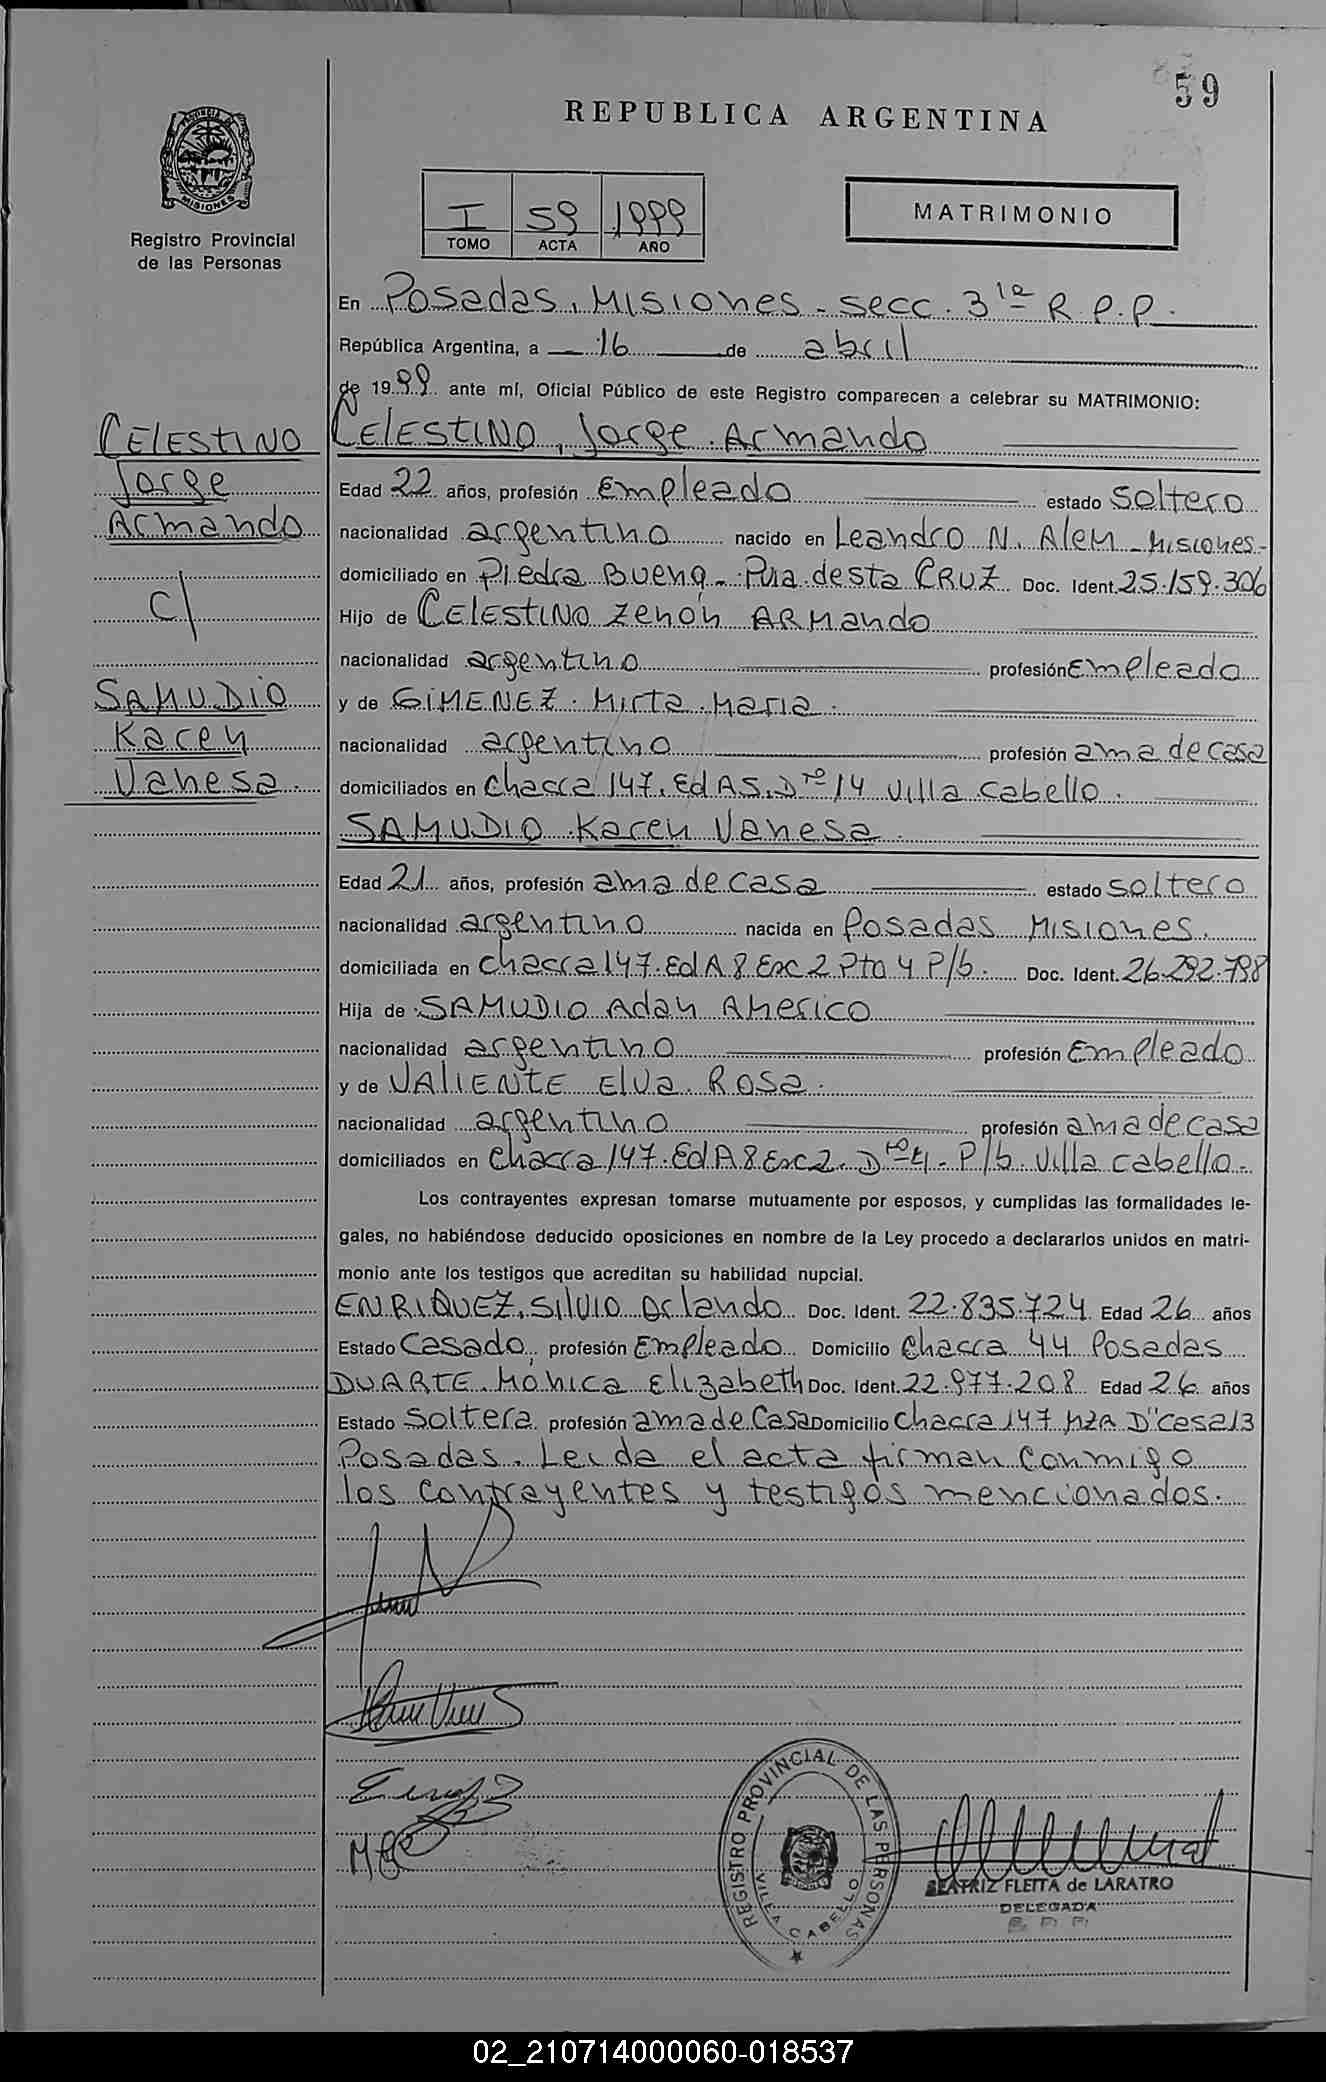 59
REPUBLICA ARGENTINA
PROVINCIA DE
MISIONES
Registro Provincial
de las Personas
I 59 1999
TOMO ACTA AÑO
MATRIMONIO
En Posadas, Misiones - secc. 3 1ª R.P.P.
República Argentina, a 16 de abril
de 1999 ante mí, Oficial Público de este Registro comparecen a celebrar su MATRIMONIO:
CELESTINO
Jorge
Armando
c/
SAMUDIO
Karen
Vanesa.
CELESTINO, Jorge Armando
Edad 22 años, profesión Empleado estado soltero
nacionalidad argentino nacido en Leandro N. Alem - Misiones -
domiciliado en Piedra Buena - Pcia. de sta CRUZ Doc. Ident. 25.159.306
Hijo de CELESTINO Zenón ARMando
nacionalidad argentino profesión Empleado
y de GIMENEZ Mirta Maria.
nacionalidad argentino profesión ama de casa
domiciliados en Chacra 147. Ed A5. Dto 14 Villa Cabello.
SAMUDIO Karen Vanesa.
Edad 21 años, profesión ama de casa estado soltero
nacionalidad argentino nacida en Posadas Misiones.
domiciliada en Chacra 147. Ed A 8 Esc 2 Pto 4 P/b. Doc. Ident. 26.292.798
Hija de SAMUDIO Adan Americo
nacionalidad argentino profesión Empleado
y de VALIENTE Elva Rosa.
nacionalidad argentino profesión ama de casa
domiciliados en Chacra 147. Ed A 8 Esc 2. Dto 4 - P/b. Villa Cabello.
Los contrayentes expresan tomarse mutuamente por esposos, y cumplidas las formalidades le-
gales, no habiéndose deducido oposiciones en nombre de la Ley procedo a declararlos unidos en matri-
monio ante los testigos que acreditan su habilidad nupcial.
ENRIQUEZ, Silvio Orlando Doc. Ident. 22.835.724 Edad 26 años
Estado Casado, profesión Empleado Domicilio Chacra 44 Posadas
DUARTE Monica Elizabeth Doc. Ident. 22.977.208 Edad 26 años
Estado Soltera profesión ama de Casa Domicilio Chacra 147 Mza D" casa 13
Posadas. Leida el acta firman conmigo
los contrayentes y testigos mencionados.
REGISTRO PROVINCIAL DE LAS PERSONAS
VILLA CABELLO
BEATRIZ FLEITA de LARATRO
DELEGADA
02_210714000060-018537